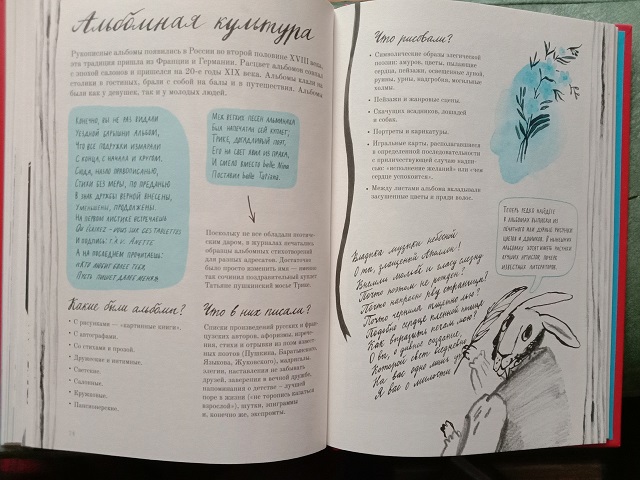 Альбомная культура
Рукописные альбомы появились в России во второй половине XVIII века,
эта традиция пришла из Франции и Германии. Расцвет альбомов совпал
с эпохой салонов и пришелся на 20-е годы XIX века. Альбомы клали на
столики в гостиных, брали с собой на балы и в путешествия. Альбомы
были как у девушек, так и у молодых людей.
Конечно, вы не раз видали
Уездной барышни альбом,
Что все подружки измарали
С конца, с начала и кругом.
Сюда, назло правописанью,
Стихи без меры, по преданью
В знак дружбы верной внесены,
Уменьшены, продолжены.
На первом листике встречаешь
Qu'écrirez-vous sur ces tablettes
И подпись: t. à v. Annette
А на последнем прочитаешь:
«Кто любит более тебя,
Пусть пишет далее меня».
Меж ветхих песен альманаха
Был напечатан сей куплет;
Трике, догадливый поэт,
Его на свет явил из праха,
И смело вместо belle Nina
Поставил belle Tatiana.
Поскольку не все обладали поэтиче-
ским даром, в журналах печатались
образцы альбомных стихотворений
для разных адресатов. Достаточно
было просто изменить имя — именно
так сочинил поздравительный куплет
Татьяне пушкинский мосье Трике.
Какие были альбомы?
• С рисунками — «картинные книги».
• С автографами.
• Со стихами и прозой.
• Дружеские и интимные.
• Светские.
• Салонные.
• Кружковые.
• Пансионерские.
Что в них писали?
Списки произведений русских и фран-
цузских авторов, афоризмы, изрече-
ния, стихи и отрывки из поэм извест-
ных поэтов (Пушкина, Баратынского,
Языкова, Жуковского), мадригалы,
элегии, наставления не забывать
друзей, заверения в вечной дружбе,
напоминания о детстве — лучшей
поре в жизни («не торопись казаться
взрослой»), шутки, эпиграммы
и, конечно же, экспромты.
Что рисовали?
• Символические образы элегической
поэзии: амуров, цветы, пылающие
сердца, пейзажи, освещенные луной,
руины, урны, надгробия, могильные
холмы.
• Пейзажи и жанровые сцены.
• Собственных собак, лошадей
и собак.
• Портреты и карикатуры.
• Игральные карты, располагавшиеся
в определенной последовательности
с приличествующей случаю надпи-
сью: «исполнение желаний» или «чем
сердце успокоится».
• Между листами альбома вкладывали
засушенные цветы и пряди волос.
Теперь редко найдете
в альбомах выписки из
печатного или дурные рисунки
цветов и домиков. В нынешних
альбомах хотят иметь рисунки
лучших артистов, почерк
известных литераторов.
Владыка музыки небесной
О ты, злощавый Апполон!
Внемли мольбе и гласу
Почто поэтом не рожден?
Почто напрасно рву страницы?
Почто чернила тщетно лью?
Подобно сердце пленной птице
Как выразить печаль мою?
О вы, о дивное созданье,
Которой свет
На вас одно лишь
Я вас о милости